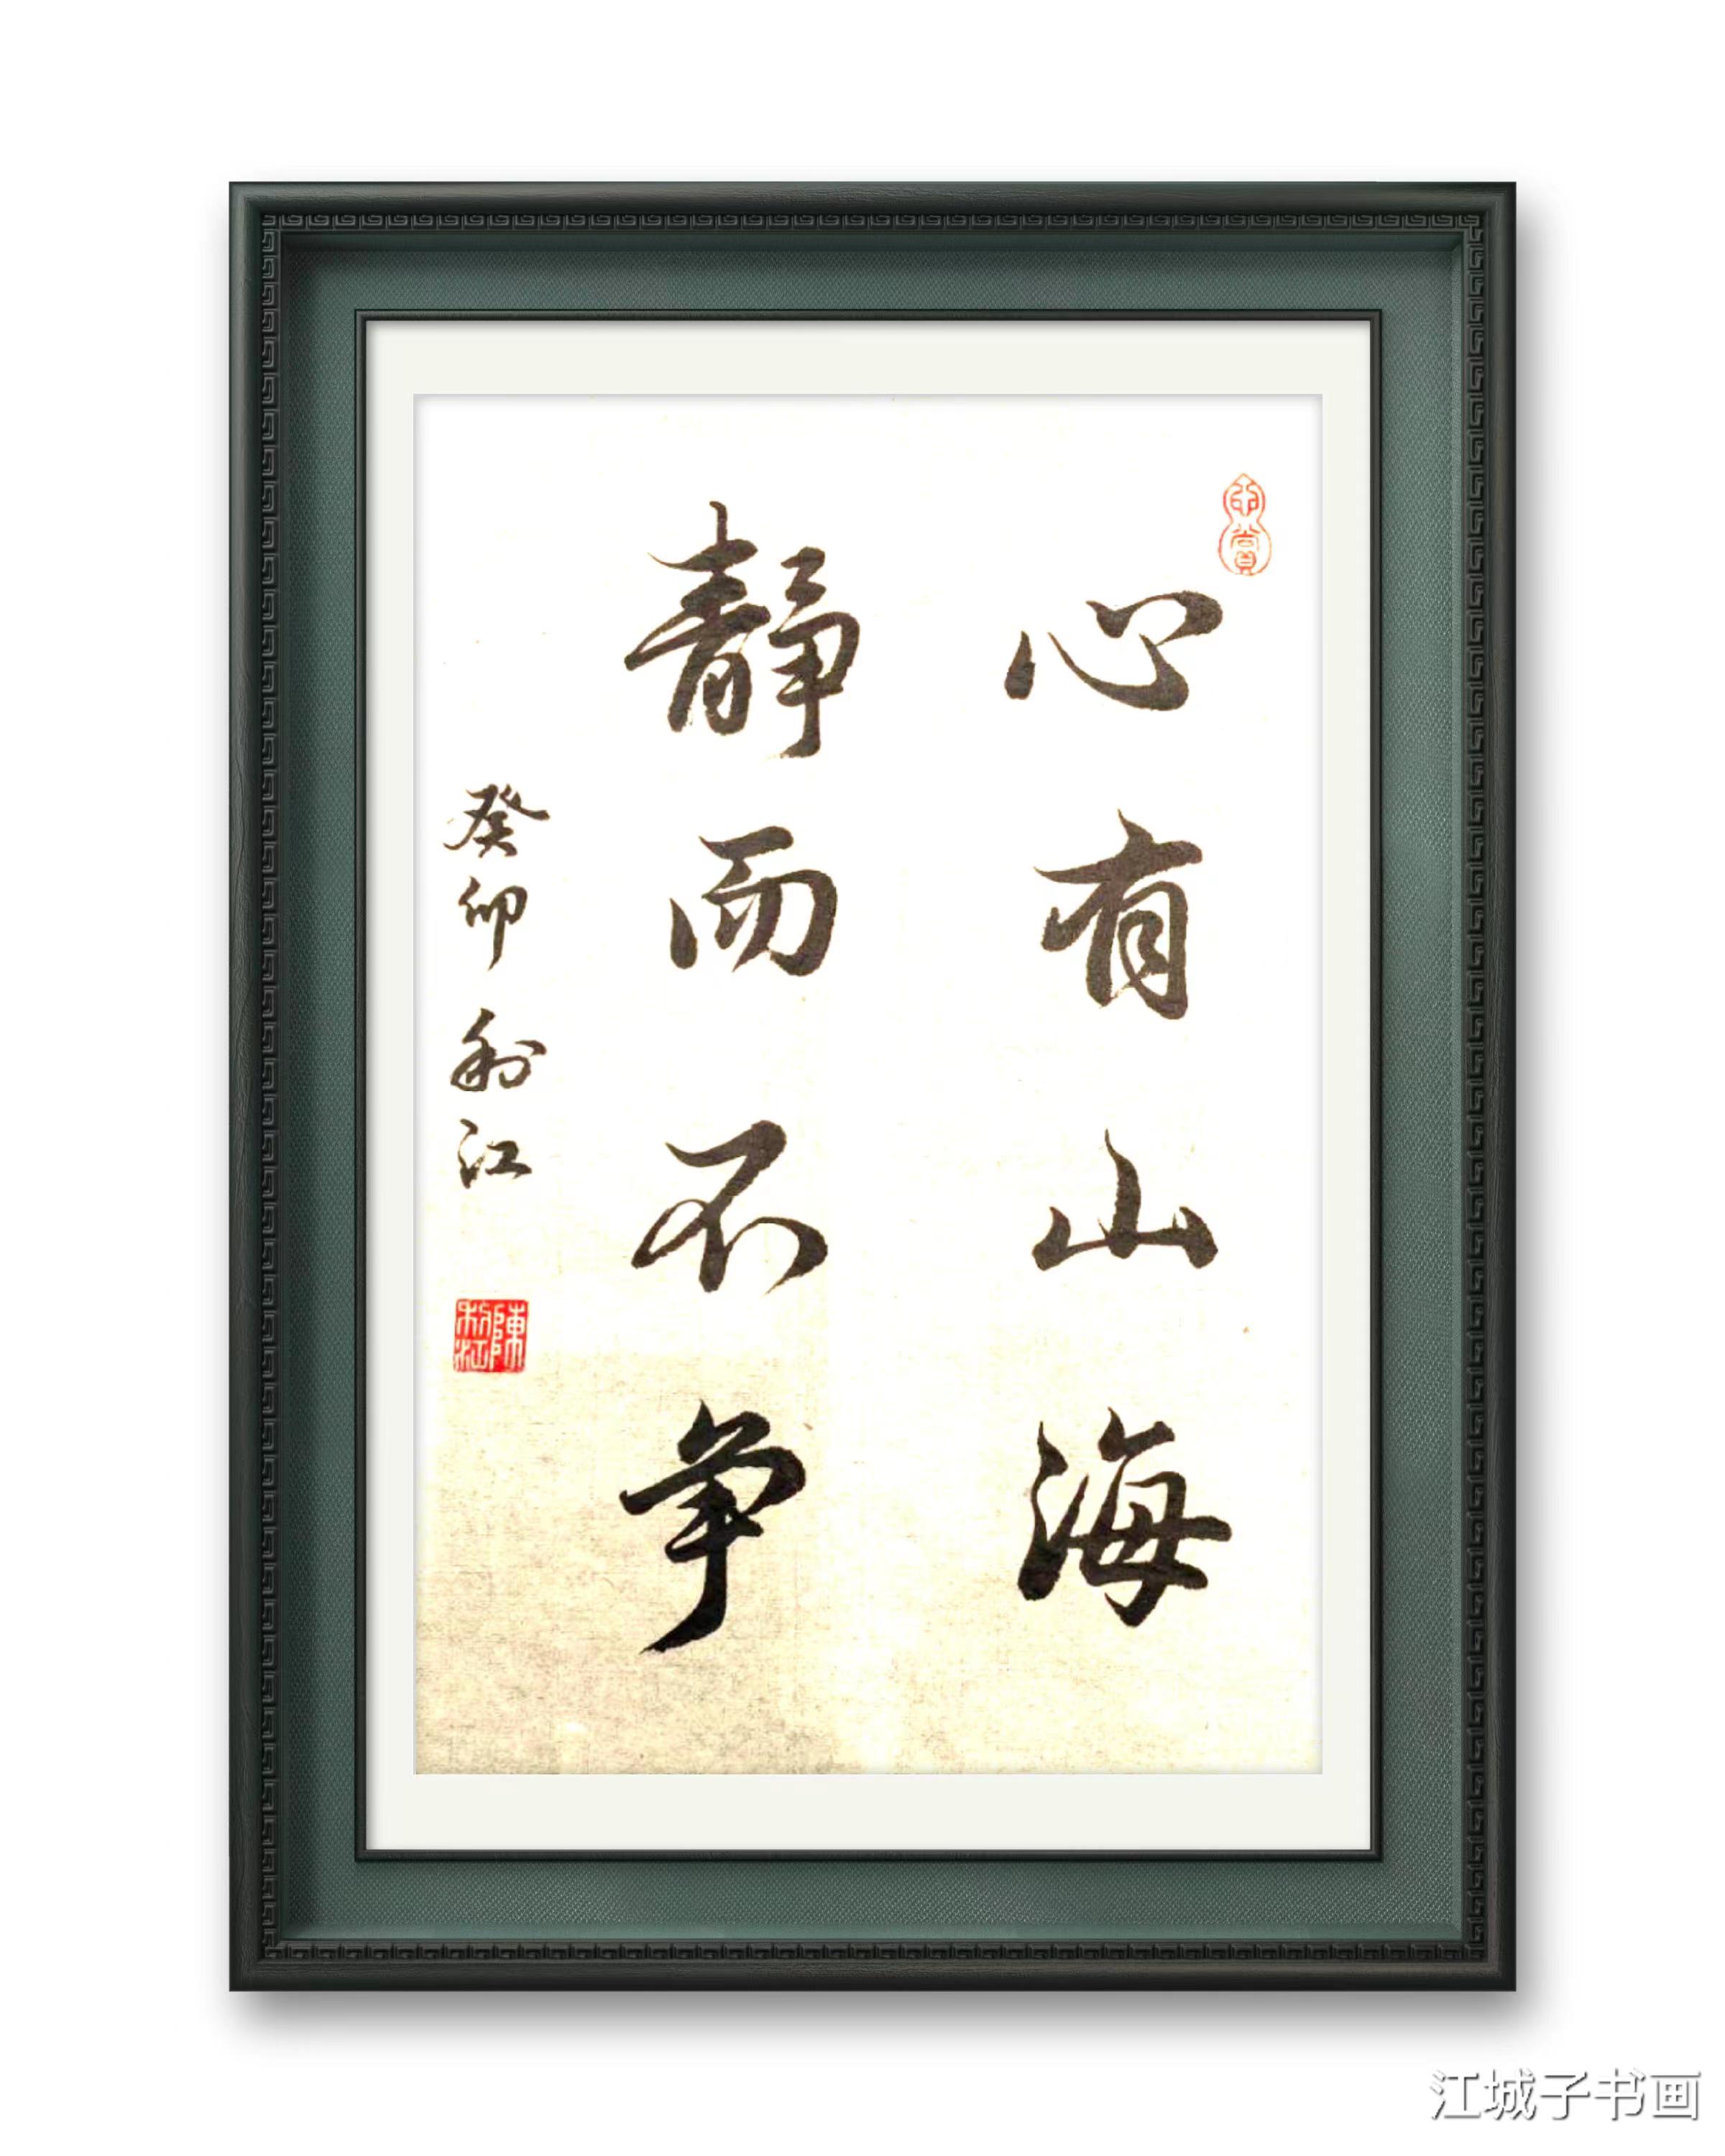 心有山海
静而不争
癸卯 利江
陳利江
江城子书画